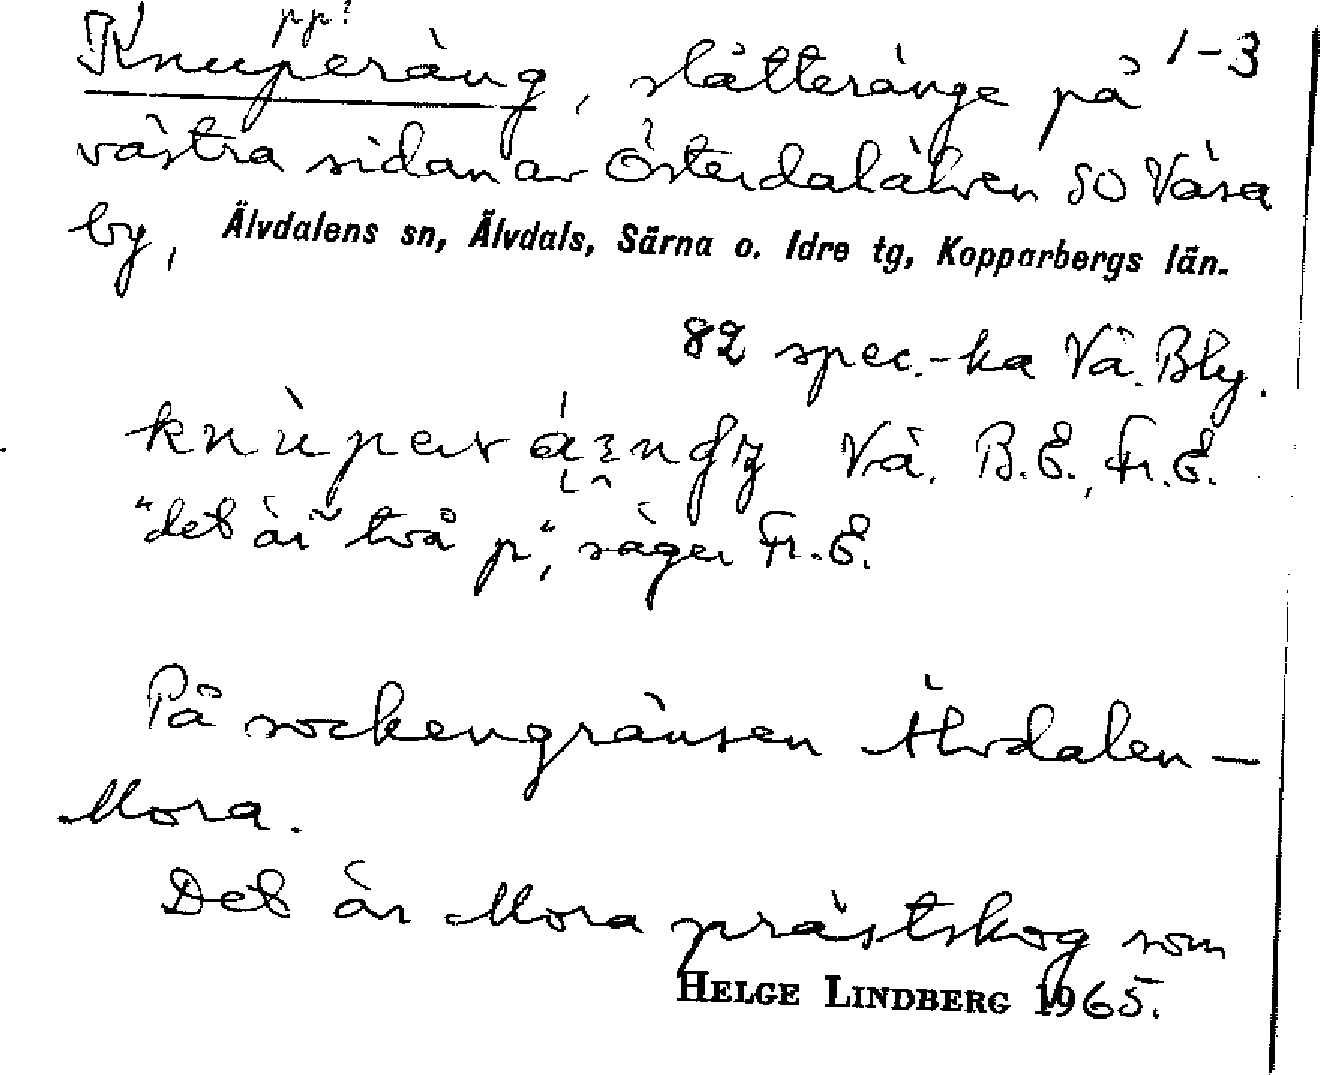 pp?
Knuperäng, slätteränge på 1-3
västra sidan av Österdalälven SO Våsa
by, Älvdalens sn, Älvdals, Särna o. Idre tg, Kopparbergs län.
82 spec.-ka Vå. Bly.
Vå. B.E., Fr.E.
"det är två p", säger Fr.E.
På sockengränsen Älvdalen –
Mora.
Det är Mora prästskog som
HELGE LINDBERG 1965.